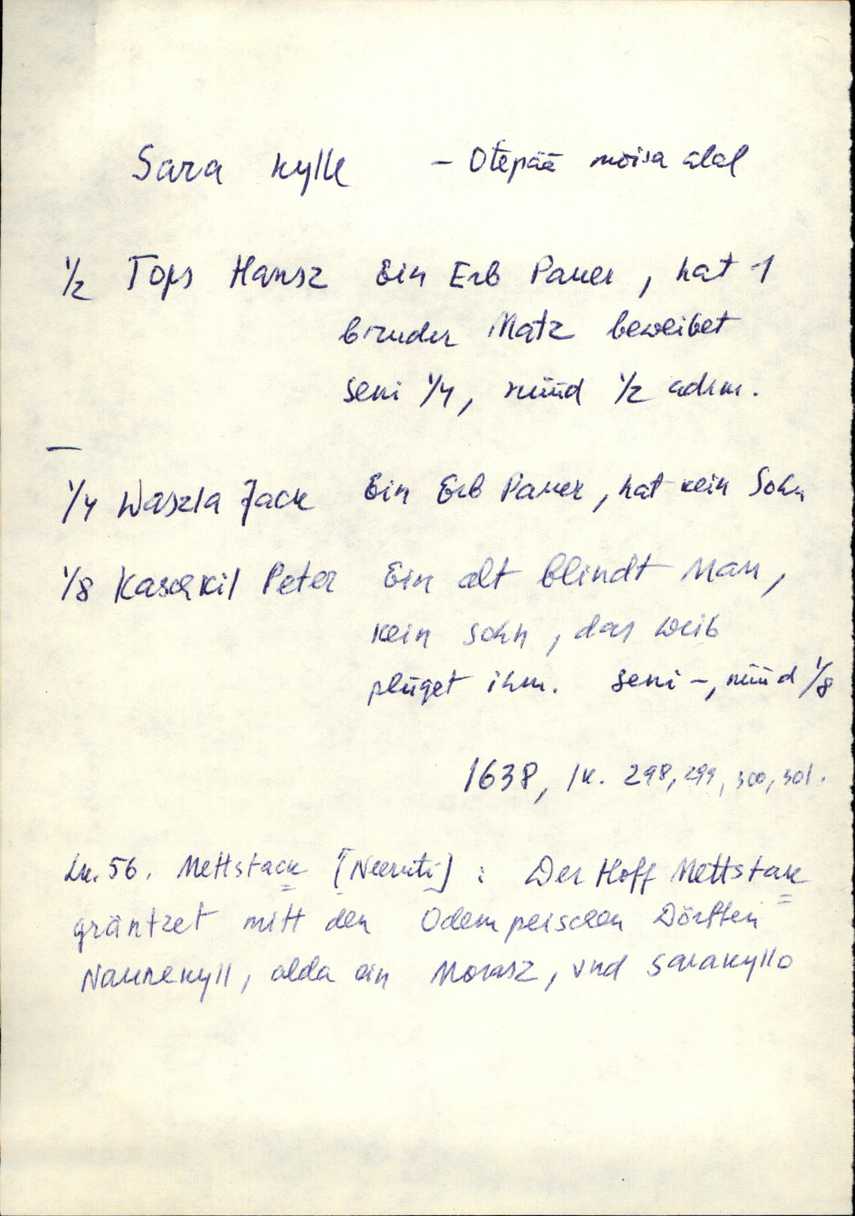 Sara kylle – Otepää mõisa alal
1/2 Tops Hansz Ein Erb Pauer, hat 1
bruder Matz beweibet
seni 1/4, nüüd 1/2 adrm.
–
1/4 Waszla Jack Ein Erb Pauer, hat kein Sohn
1/8 Kaschkil Peter Ein alt blindt Man,
kein sohn, das weib
pflüget ihm. seni –, nüüd 1/8
1638, lk. 298, 299, 300, 301.
Lk. 56. Mettstack [Neeruti] : Der Hoff Mettstak
gräntzet mitt den Odempeischen Dörffen
Naurekyll, alda ein Morasz, vnd Sarakyllo